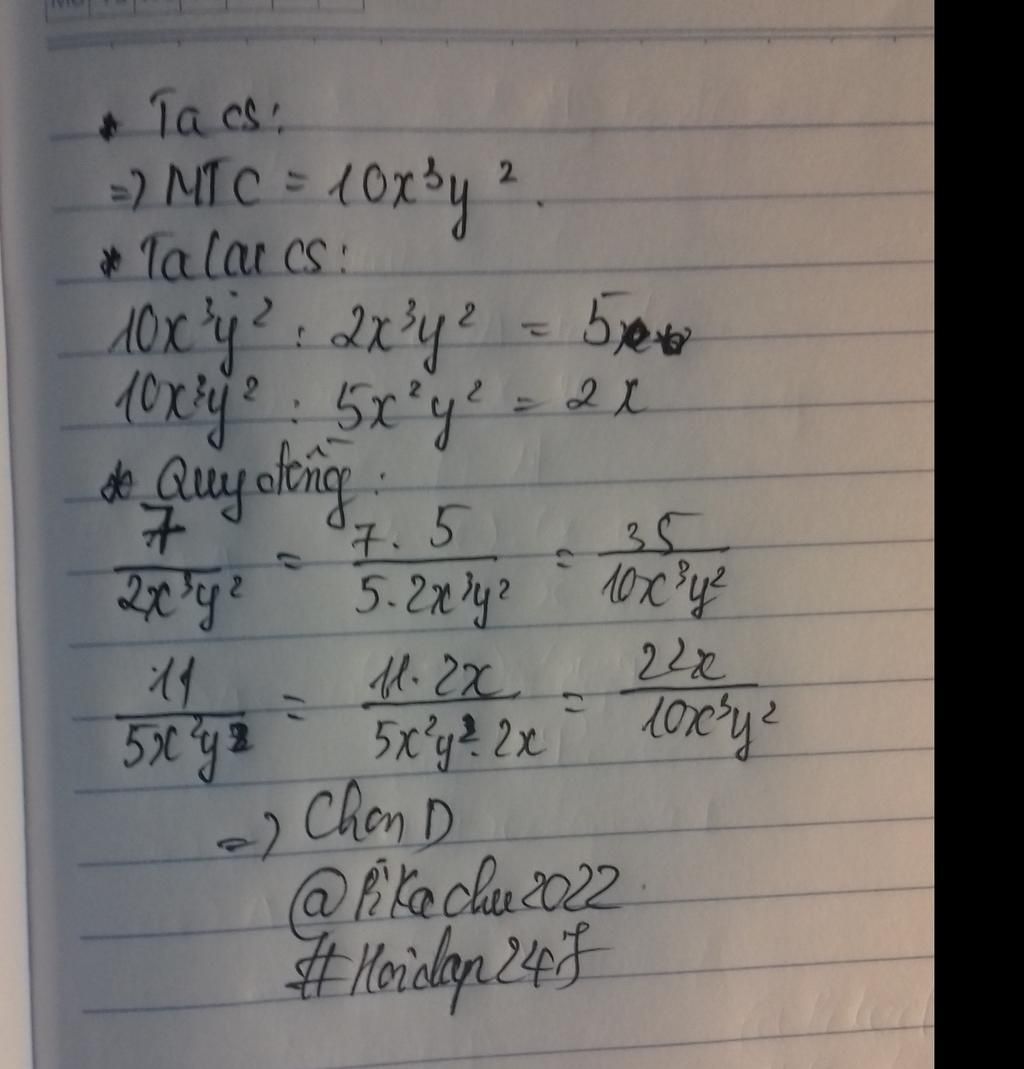 * Ta có:
=> MTC = 10x³y².
* Ta lại có:
10x³y² : 2x³y² = 5
10x³y² : 5x²y² = 2x
* Quy đồng:
7/2x³y² = 7.5/5.2x³y² = 35/10x³y²
11/5x²y² = 11.2x/5x²y².2x = 22x/10x³y²
=> Chọn D
@Pikachu2022
#Hoidap247